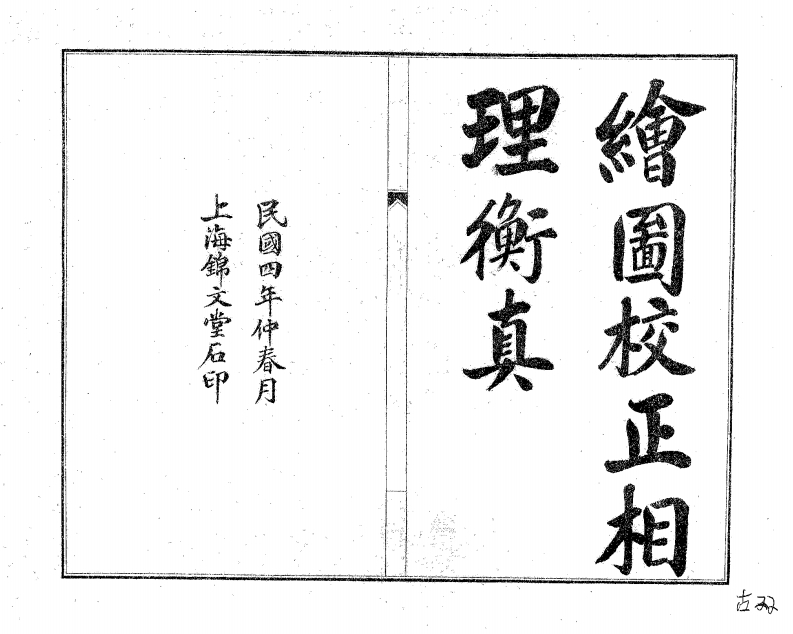 繪圖校正相
理衡真
民國四年仲春月
上海錦文堂石印